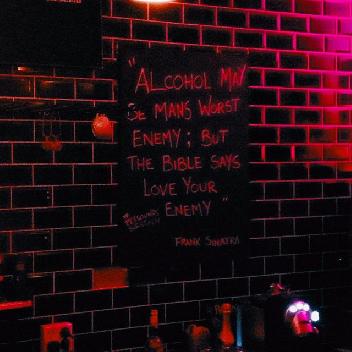 "ALCOHOL MAY
BE MANS WORST
ENEMY; BUT
THE BIBLE SAYS
LOVE YOUR
ENEMY"
FRANK SINATRA